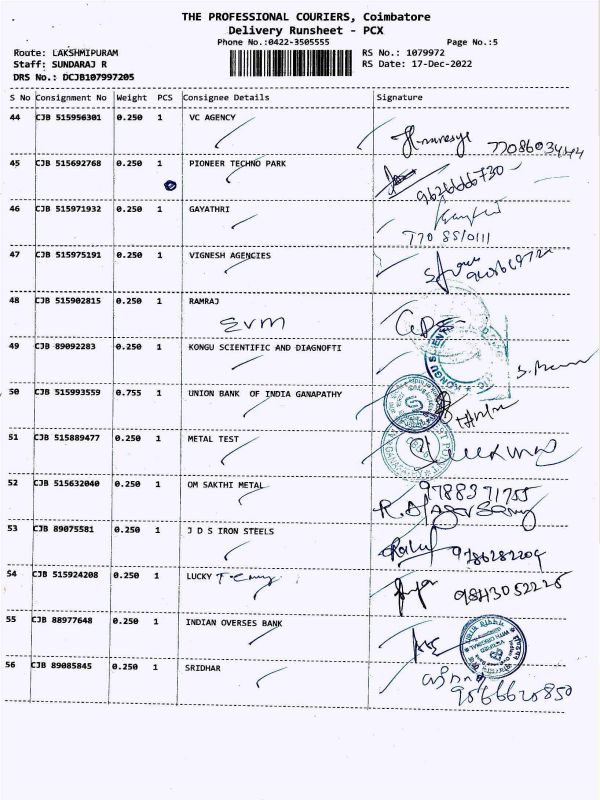 THE PROFESSIONAL COURIERS, Coimbatore
Delivery Runsheet - PCX
Phone No.:0422-3505555 Page No.:5
Route: LAKSHMIPURAM RS No.: 1079972
Staff: SUNDARAJ R RS Date: 17-Dec-2022
DRS No.: DCJB107997205
S No Consignment No Weight PCS Consignee Details Signature
44 CJB 515956301 0.250 1 VC AGENCY
45 CJB 515692768 0.250 1 PIONEER TECHNO PARK
46 CJB 515971932 0.250 1 GAYATHRI
47 CJB 515975191 0.250 1 VIGNESH AGENCIES
48 CJB 515902815 0.250 1 RAMRAJ
EVM
49 CJB 89092283 0.250 1 KONGU SCIENTIFIC AND DIAGNOFTI
50 CJB 515993559 0.755 1 UNION BANK OF INDIA GANAPATHY
51 CJB 515889477 0.250 1 METAL TEST
52 CJB 515632040 0.250 1 OM SAKTHI METAL
9788371755
53 CJB 89075581 0.250 1 J D S IRON STEELS
9786282209
54 CJB 515924208 0.250 1 LUCKY
9843052225
55 CJB 88977648 0.250 1 INDIAN OVERSES BANK
56 CJB 89085845 0.250 1 SRIDHAR
9566620850